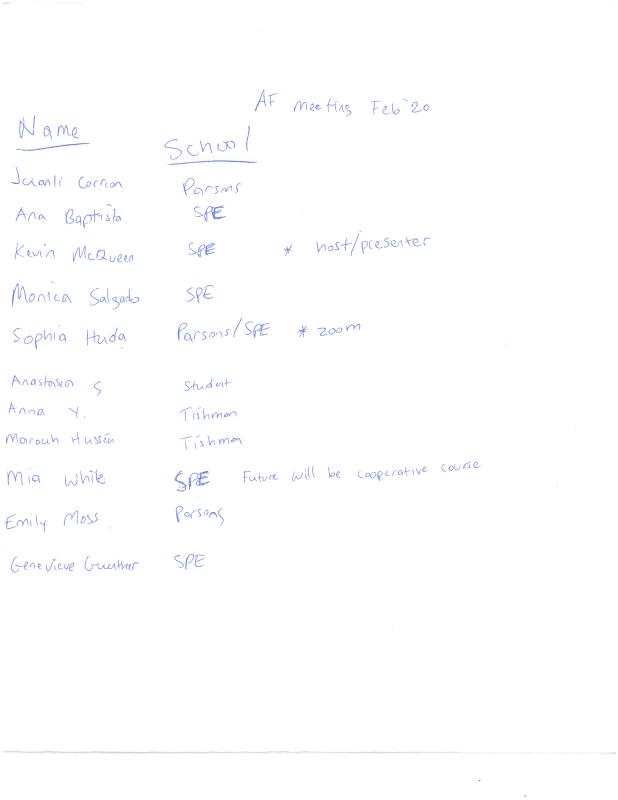 AF meeting Feb 20
Name School
Juanli Carrion Parsons
Ana Baptista SPE
Kevin McQueen SPE * host/presenter
Monica Salgado SPE
Sophia Huda Parsons/SPE * zoom
Anastasia S Student
Anna Y. Tishman
Marouh Hussein Tishman
Mia White SPE Future will be cooperative course
Emily Moss Parsons
Genevieve Guenther SPE